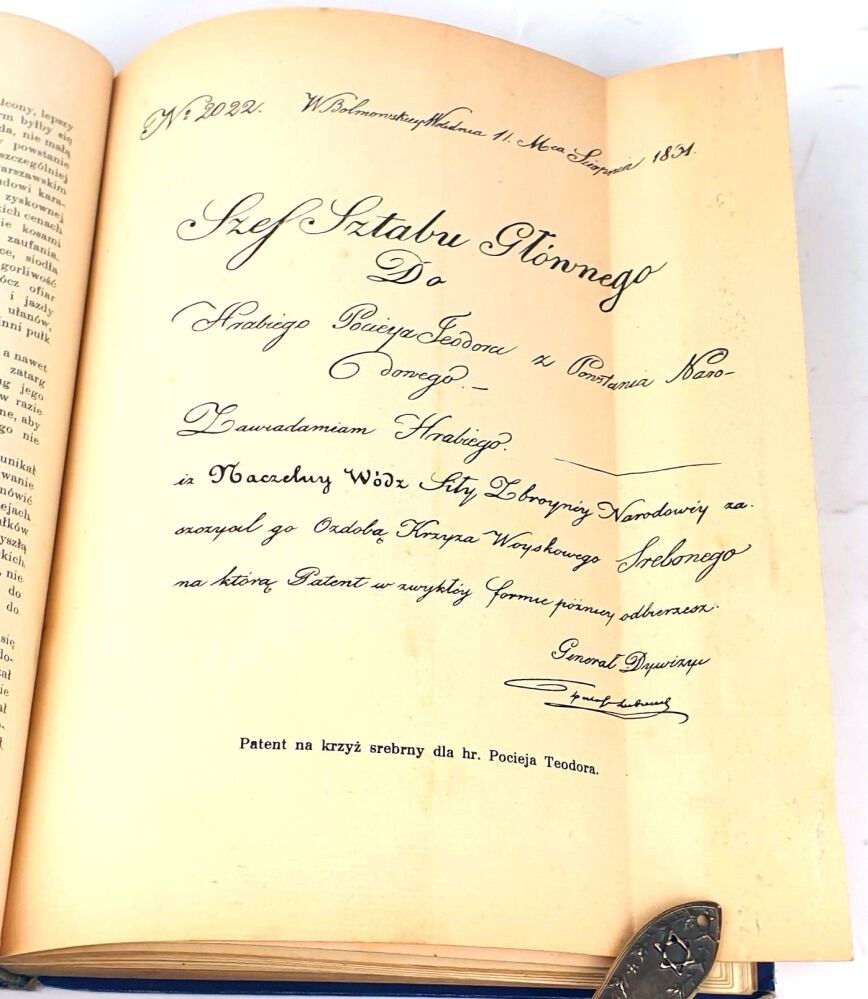 icony, lepszy
m byłby się
da, nie małą
powstanie
szczególniej
arszawskim
udowi kara-
zyskownej
ich cenach
ie kosami
zaufania.
ce, siodła
gorliwość
ócz ofiar
i jazdy
ułanów,
inni pułk
a nawet
zatarg
g jego
w razie
ne, aby
go nie
unikał
wanie
mówić
ejach
łków
yszłą
kich,
nie
do
do
się
do-
ał
ie
ał
№ 2022. W Bolmowskiey Wólednia 11. Mca Sierpnia 1831.
Szef Sztabu Głównego
Do
Hrabiego Pocieya Teodora z Powstania Naro-
dowego. —
Zawiadamiam Hrabiego.
iż Naczelny Wódz Siły Zbroynéy Narodowéy za.
szczycił go Ozdobą Krzyża Woyskowego Srebonego
na którą Patent w zwykłéy formie późniey odbierzesz.
Generał Dywizyi
Patent na krzyż srebrny dla hr. Pocieja Teodora.